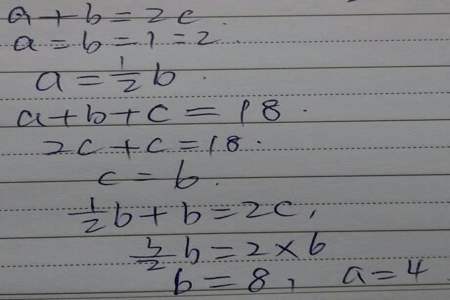 a + b = 2c.
a = b = 1 = 2.
a = 1/2 b.
a + b + c = 18.
2c + c = 18.
c = 6.
1/2 b + b = 2c,
3/2 b = 2 × 6
b = 8, a = 4